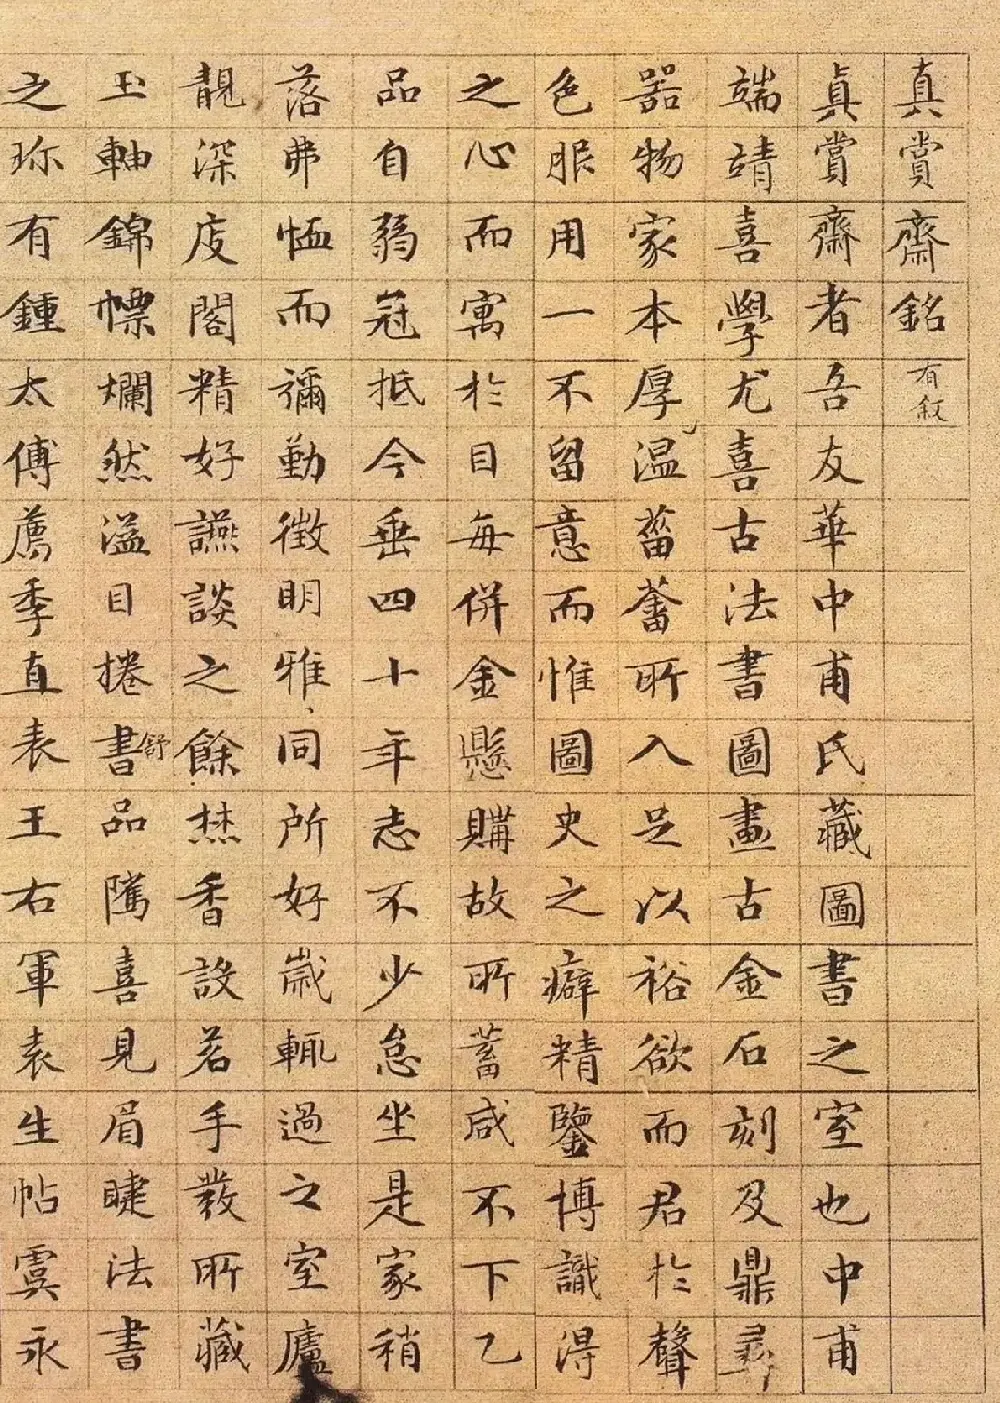 真賞齋銘 有敘
真賞齋者吾友華中甫氏藏圖書之室也中甫
端靖喜學尤喜古法書圖畫古金石刻及鼎彝
器物家本厚溫菑畬所入足以裕欲而君於聲
色服用一不留意而惟圖史之癖精鑒博識得
之心而寓於目每併金懸購故所蓄咸不下乙
品自弱冠抵今垂四十年志不少怠坐是家稍
落弗恤而彌勤徵明雅同所好歲輒過之室廬
靚深庋閣精好讌談之餘焚香設茗手發所藏
玉軸錦幖爛然溢目捲書舒品騭喜見眉睫法書
之珎有鍾太傅薦季直表王右軍袁生帖虞永